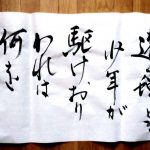 少年が
駆けおり
われは
何を